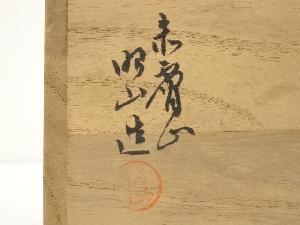 赤膚山
昭山造